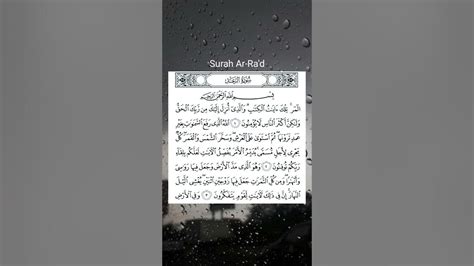 Surah Ar-Ra'd
سُورَةُ الرَّعْدِ
بِسْمِ اللَّهِ الرَّحْمَٰنِ الرَّحِيمِ
الٓمٓر ۚ تِلْكَ ءَايَٰتُ الْكِتَٰبِ ۗ وَالَّذِىٓ أُنزِلَ إِلَيْكَ مِن رَّبِّكَ الْحَقُّ
وَلَٰكِنَّ أَكْثَرَ النَّاسِ لَا يُؤْمِنُونَ ١ اللَّهُ الَّذِى رَفَعَ السَّمَٰوَٰتِ بِغَيْرِ
عَمَدٍ تَرَوْنَهَا ۖ ثُمَّ اسْتَوَىٰ عَلَى الْعَرْشِ ۖ وَسَخَّرَ الشَّمْسَ وَالْقَمَرَ ۖ كُلٌّ
يَجْرِى لِأَجَلٍ مُّسَمًّى ۚ يُدَبِّرُ الْأَمْرَ يُفَصِّلُ الْءَايَٰتِ لَعَلَّكُم بِلِقَآءِ
رَبِّكُمْ تُوقِنُونَ ٢ وَهُوَ الَّذِى مَدَّ الْأَرْضَ وَجَعَلَ فِيهَا رَوَٰسِىَ
وَأَنْهَٰرًا ۖ وَمِن كُلِّ الثَّمَرَٰتِ جَعَلَ فِيهَا زَوْجَيْنِ اثْنَيْنِ ۖ يُغْشِى الَّيْلَ
النَّهَارَ ۚ إِنَّ فِى ذَٰلِكَ لَءَايَٰتٍ لِّقَوْمٍ يَتَفَكَّرُونَ ٣ وَفِى الْأَرْضِ